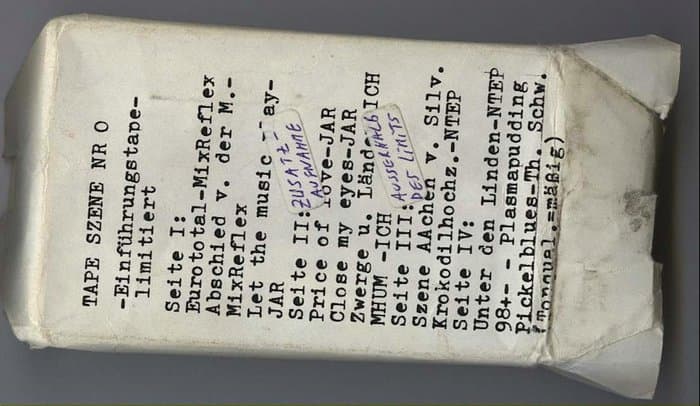 TAPE SZENE NR O
-Einführungstape-
limitiert
Seite I:
Eurototal-MixReflex
Abschied v. der M.-
MixReflex
Let the music play-
JAR
Seite II:
ZUSATZ
AUFNAHME
Price of love-JAR
Close my eyes-JAR
Zwerge u. Lände ICH
MHUM -ICH
Seite III:
AUSSERHALB
DES LIMITS
Szene AAchen v. Silv.
Krokodilhochz.-NTEP
Seite IV:
Unter den Linden-NTEP
98+- - Plasmapudding
Pickelblues-Th. Schw.
(Tonqual.=mäßig)